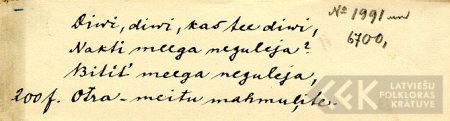 Diwi, diwi, kas tee diwi,
№ 1991 un
6700,
Nakti meega neguleja?
Bitit' meega neguleja,
200 f. Otra - meitu mahmuļite.
LATVIEŠU
FOLKLORAS
KRĀTUVE